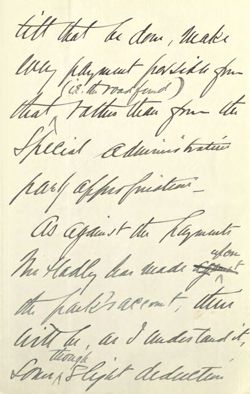 till that be done, make
every payment possible from
(i.e. the road fund)
that, rather than from the
Special administrative
park appropriation —
As against the payments
Mr Hadley has made against upon
the park's account, there
will be, as I understand it,
some, though slight deduction